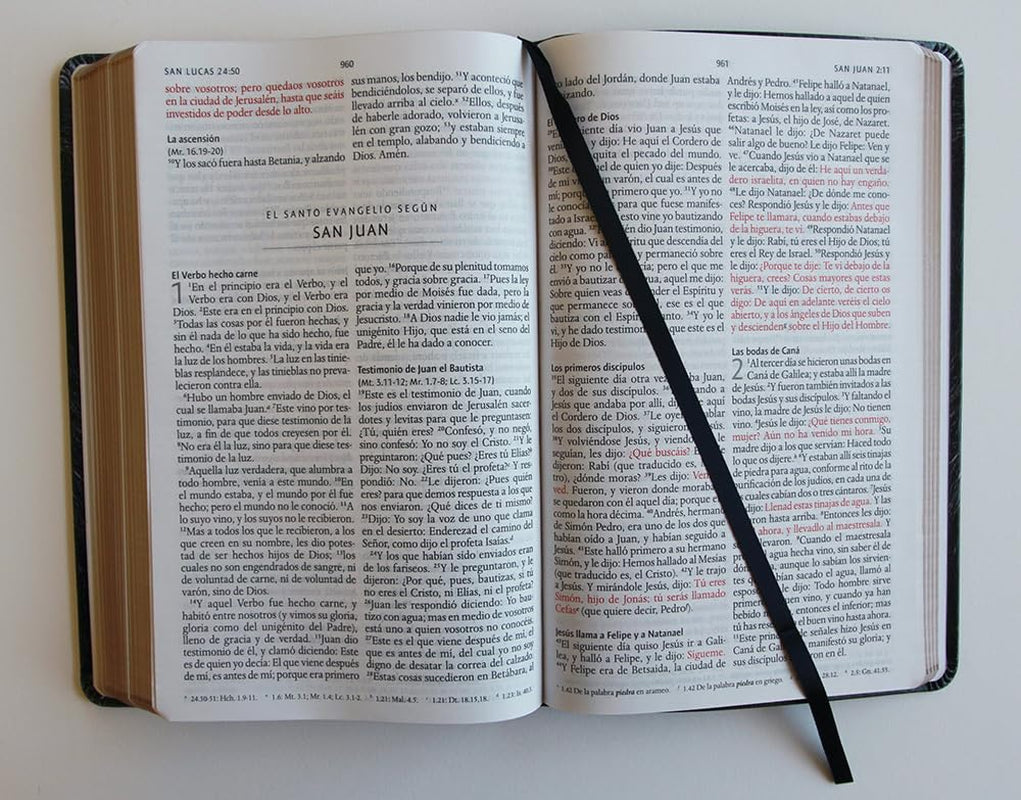 SAN LUCAS 24:50
960
sobre vosotros; pero quedaos vosotros
en la ciudad de Jerusalén, hasta que seáis
investidos de poder desde lo alto.
La ascensión
(Mr. 16.19-20)
⁵⁰Y los sacó fuera hasta Betania, y alzando
sus manos, los bendijo. ⁵¹Y aconteció que
bendiciéndolos, se separó de ellos, y fue
llevado arriba al cielo.ˣ ⁵²Ellos, después
de haberle adorado, volvieron a Jerusa-
lén con gran gozo; ⁵³y estaban siempre
en el templo, alabando y bendiciendo a
Dios. Amén.
EL SANTO EVANGELIO SEGÚN
SAN JUAN
El Verbo hecho carne
1 ¹En el principio era el Verbo, y el
Verbo era con Dios, y el Verbo era
Dios. ²Este era en el principio con Dios.
³Todas las cosas por él fueron hechas, y
sin él nada de lo que ha sido hecho, fue
hecho. ⁴En él estaba la vida, y la vida era
la luz de los hombres. ⁵La luz en las tinie-
blas resplandece, y las tinieblas no preva-
lecieron contra ella.
⁶Hubo un hombre enviado de Dios, el
cual se llamaba Juan.ᵃ ⁷Este vino por tes-
timonio, para que diese testimonio de la
luz, a fin de que todos creyesen por él.
⁸No era él la luz, sino para que diese tes-
timonio de la luz.
⁹Aquella luz verdadera, que alumbra a
todo hombre, venía a este mundo. ¹⁰En
el mundo estaba, y el mundo por él fue
hecho; pero el mundo no le conoció. ¹¹A
lo suyo vino, y los suyos no le recibieron.
¹²Mas a todos los que le recibieron, a los
que creen en su nombre, les dio potes-
tad de ser hechos hijos de Dios; ¹³los
cuales no son engendrados de sangre, ni
de voluntad de carne, ni de voluntad de
varón, sino de Dios.
¹⁴Y aquel Verbo fue hecho carne, y
habitó entre nosotros (y vimos su gloria,
gloria como del unigénito del Padre),
lleno de gracia y de verdad. ¹⁵Juan dio
testimonio de él, y clamó diciendo: Este
es de quien yo decía: El que viene después
de mí, es antes de mí; porque era primero
que yo. ¹⁶Porque de su plenitud tomamos
todos, y gracia sobre gracia. ¹⁷Pues la ley
por medio de Moisés fue dada, pero la
gracia y la verdad vinieron por medio de
Jesucristo. ¹⁸A Dios nadie le vio jamás; el
unigénito Hijo, que está en el seno del
Padre, él le ha dado a conocer.
Testimonio de Juan el Bautista
(Mt. 3.11-12; Mr. 1.7-8; Lc. 3.15-17)
¹⁹Este es el testimonio de Juan, cuando
los judíos enviaron de Jerusalén sacer-
dotes y levitas para que le preguntasen:
¿Tú, quién eres? ²⁰Confesó, y no negó,
sino confesó: Yo no soy el Cristo. ²¹Y le
preguntaron: ¿Qué pues? ¿Eres tú Elías?
Dijo: No soy. ¿Eres tú el profeta? Y res-
pondió: No. ²²Le dijeron: ¿Pues quién
eres? para que demos respuesta a los que
nos enviaron. ¿Qué dices de ti mismo?
²³Dijo: Yo soy la voz de uno que clama
en el desierto: Enderezad el camino del
Señor, como dijo el profeta Isaías.ᵈ
²⁴Y los que habían sido enviados eran
de los fariseos. ²⁵Y le preguntaron, y le
dijeron: ¿Por qué, pues, bautizas, si tú
no eres el Cristo, ni Elías, ni el profeta?
²⁶Juan les respondió diciendo: Yo bau-
tizo con agua; mas en medio de vosotros
está uno a quien vosotros no conocéis.
²⁷Este es el que viene después de mí, el
que es antes de mí, del cual yo no soy
digno de desatar la correa del calzado.
²⁸Estas cosas sucedieron en Betábara, al
24:50-51: Hch. 1.9-11. 1.6: Mt. 3.1; Mr. 1.4; Lc. 3.1-2. 1.21: Mal. 4.5. 1.21: Dt. 18.15,18. 1.23: Is. 40.3.
961
SAN JUAN 2:11
lado del Jordán, donde Juan estaba
de Dios
siguiente día vio Juan a Jesús que
y dijo: He aquí el Cordero de
Dios, quita el pecado del mundo.
el de quien yo dije: Después
de mí varón, el cual es antes de
mí; primero que yo. ³¹Y yo no
para que fuese manifes-
tado a esto vino yo bautizando
con agua. dio Juan testimonio,
diciendo: Vi que descendía del
cielo como y permaneció sobre
él. ³³Y yo no le pero el que me
envió a bautizar aquel me dijo:
Sobre quien veas der el Espíritu y
que permanece ese es el que
bautiza con el Espíritu ³⁴Y yo le
vi, y he dado que este es el
Hijo de Dios.
Los primeros discípulos
³⁵El siguiente día otra Juan,
y dos de sus discípulos. ndo a
Jesús que andaba por allí, aquí
el Cordero de Dios. ³⁷Le hablar
los dos discípulos, y siguieron
³⁸Y volviéndose Jesús, y viendo
seguían, les dijo: ¿Qué buscáis?
dijeron: Rabí (que traducido es,
tro), ¿dónde moras? ³⁹Les dijo:
ved. Fueron, y vieron donde
se quedaron con él aquel día; porque
como la hora décima. ⁴⁰Andrés, hermano
de Simón Pedro, era uno de los dos que
habían oído a Juan, y habían seguido a
Jesús. ⁴¹Este halló primero a su hermano
Simón, y le dijo: Hemos hallado al Mesías
(que traducido es, el Cristo). ⁴²Y le trajo
a Jesús. Y mirándole Jesús, dijo: Tú eres
Simón, hijo de Jonás; tú serás llamado
Cefasᵉ (que quiere decir, Pedroᶠ).
Jesús llama a Felipe y a Natanael
⁴³El siguiente día quiso Jesús ir a Gali-
lea, y halló a Felipe, y le dijo: Sígueme.
⁴⁴Y Felipe era de Betsaida, la ciudad de
Andrés y Pedro. ⁴⁵Felipe halló a Natanael,
y le dijo: Hemos hallado a aquel de quien
escribió Moisés en la ley, así como los pro-
fetas: a Jesús, el hijo de José, de Nazaret.
⁴⁶Natanael le dijo: ¿De Nazaret puede
salir algo de bueno? Le dijo Felipe: Ven y
ve. ⁴⁷Cuando Jesús vio a Natanael que se
le acercaba, dijo de él: He aquí un verda-
dero israelita, en quien no hay engaño.
⁴⁸Le dijo Natanael: ¿De dónde me cono-
ces? Respondió Jesús y le dijo: Antes que
Felipe te llamara, cuando estabas debajo
de la higuera, te vi. ⁴⁹Respondió Natanael
y le dijo: Rabí, tú eres el Hijo de Dios; tú
eres el Rey de Israel. ⁵⁰Respondió Jesús y
le dijo: ¿Porque te dije: Te vi debajo de la
higuera, crees? Cosas mayores que estas
verás. ⁵¹Y le dijo: De cierto, de cierto os
digo: De aquí en adelante veréis el cielo
abierto, y a los ángeles de Dios que suben
y desciendenᵍ sobre el Hijo del Hombre.
Las bodas de Caná
2 ¹Al tercer día se hicieron unas bodas en
Caná de Galilea; y estaba allí la madre
de Jesús. ²Y fueron también invitados a las
bodas Jesús y sus discípulos. ³Y faltando el
vino, la madre de Jesús le dijo: No tienen
vino. ⁴Jesús le dijo: ¿Qué tienes conmigo,
mujer? Aún no ha venido mi hora. ⁵Su
madre dijo a los que servían: Haced todo
lo que os dijere. ⁶Y estaban allí seis tinajas
de piedra para agua, conforme al rito de la
purificación de los judíos, en cada una de
las cuales cabían dos o tres cántaros. ⁷Jesús
dijo: Llenad estas tinajas de agua. Y las
hasta arriba. ⁸Entonces les dijo:
ahora, y llevadlo al maestresala. Y
llevaron. ⁹Cuando el maestresala
agua hecha vino, sin saber él de
aunque lo sabían los sirvien-
bían sacado el agua, llamó al
le dijo: Todo hombre sirve
en vino, y cuando ya han
bebido entonces el inferior; mas
tú has el buen vino hasta ahora.
¹¹Este de señales hizo Jesús en
Caná de manifestó su gloria; y
sus discípulos en él.
1.42 De la palabra piedra en arameo. 1.42 De la palabra piedra en griego. 28.12. 2.5: Gn. 41.55.